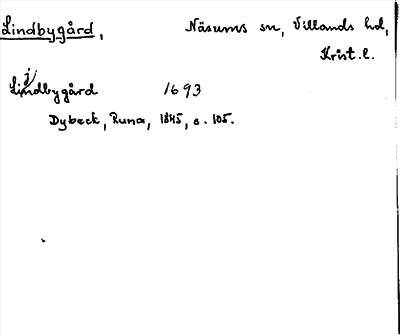 Lindbygård, Näsums sn, Villands hd,
Krist. l.
j/
Lindbygård 1693
Dybeck, Runa, 1845, s. 105.